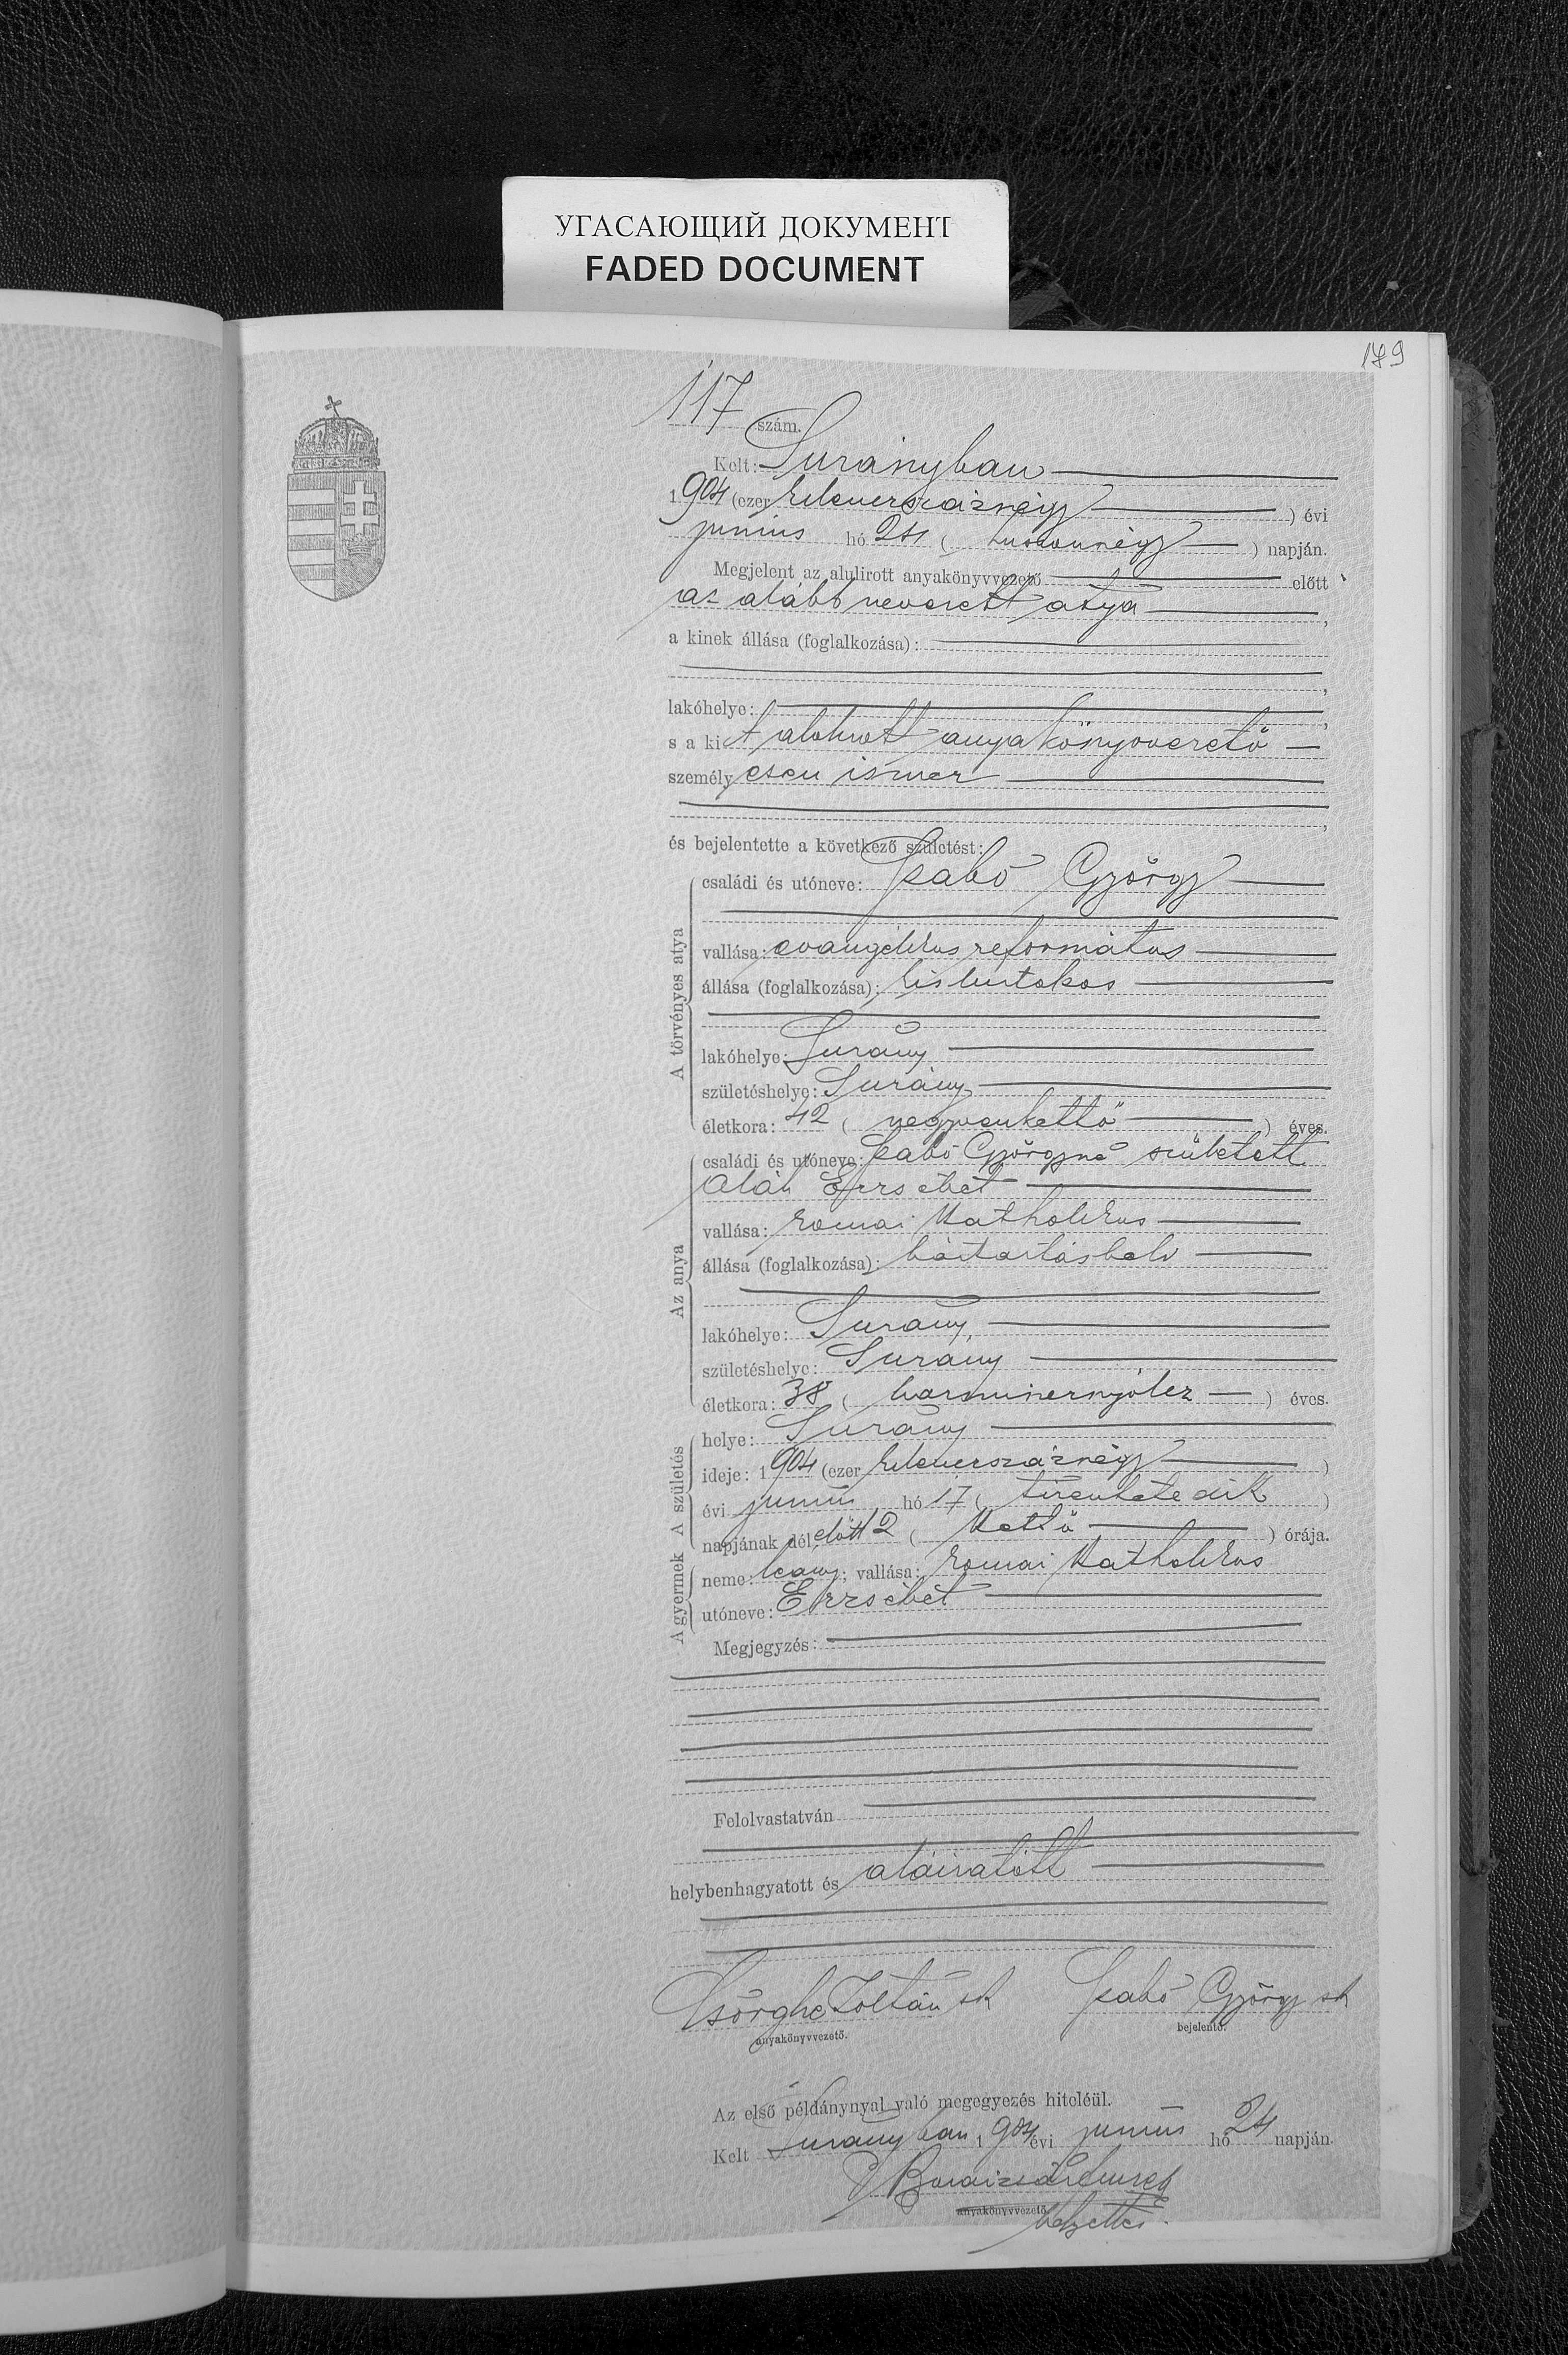 УГАСАЮЩИЙ ДОКУМЕНТ
FADED DOCUMENT
179
117 szám.
Kelt: Surányban
1904 (ezer kilenczszáznégy ) évi
junius hó 24 ( huszonnégy ) napján.
Megjelent az alulirott anyakönyvvezető előtt
az alább nevezett atya,
a kinek állása (foglalkozása):
lakóhelye:
s a kit alulirott anyakönyvvezető
személyesen ismer
és bejelentette a következő születést:
A törvényes atya
családi és utóneve: Szabó György
vallása: evangélikus református
állása (foglalkozása): kisbirtokos
lakóhelye: Surány
születéshelye: Surány
életkora: 42 ( negyvenkettő ) éves.
Az anya
családi és utóneve: Szabó Györgyné született
Oláh Erzsébet
vallása: romai katholikus
állása (foglalkozása): háztartásbeli
lakóhelye: Surány
születéshelye: Surány
életkora: 38 ( harmincznyolcz ) éves.
A születés
helye: Surány
ideje: 1904 (ezer kilenczszáznégy )
évi junius hó 17 ( tizenhetedik )
napjának dél előtt 2 ( kettő ) órája.
A gyermek
neme: leány; vallása: romai katholikus
utóneve: Erzsébet
Megjegyzés:
Felolvastatván
helybenhagyatott és aláiratott
Csörghe Zoltán sk Szabó György sk
anyakönyvvezető. bejelentő.
Az első példánynyal való megegyezés hiteléül.
Kelt Surányban 1904 évi junius hó 24 napján.
anyakönyvvezető
helyettes.